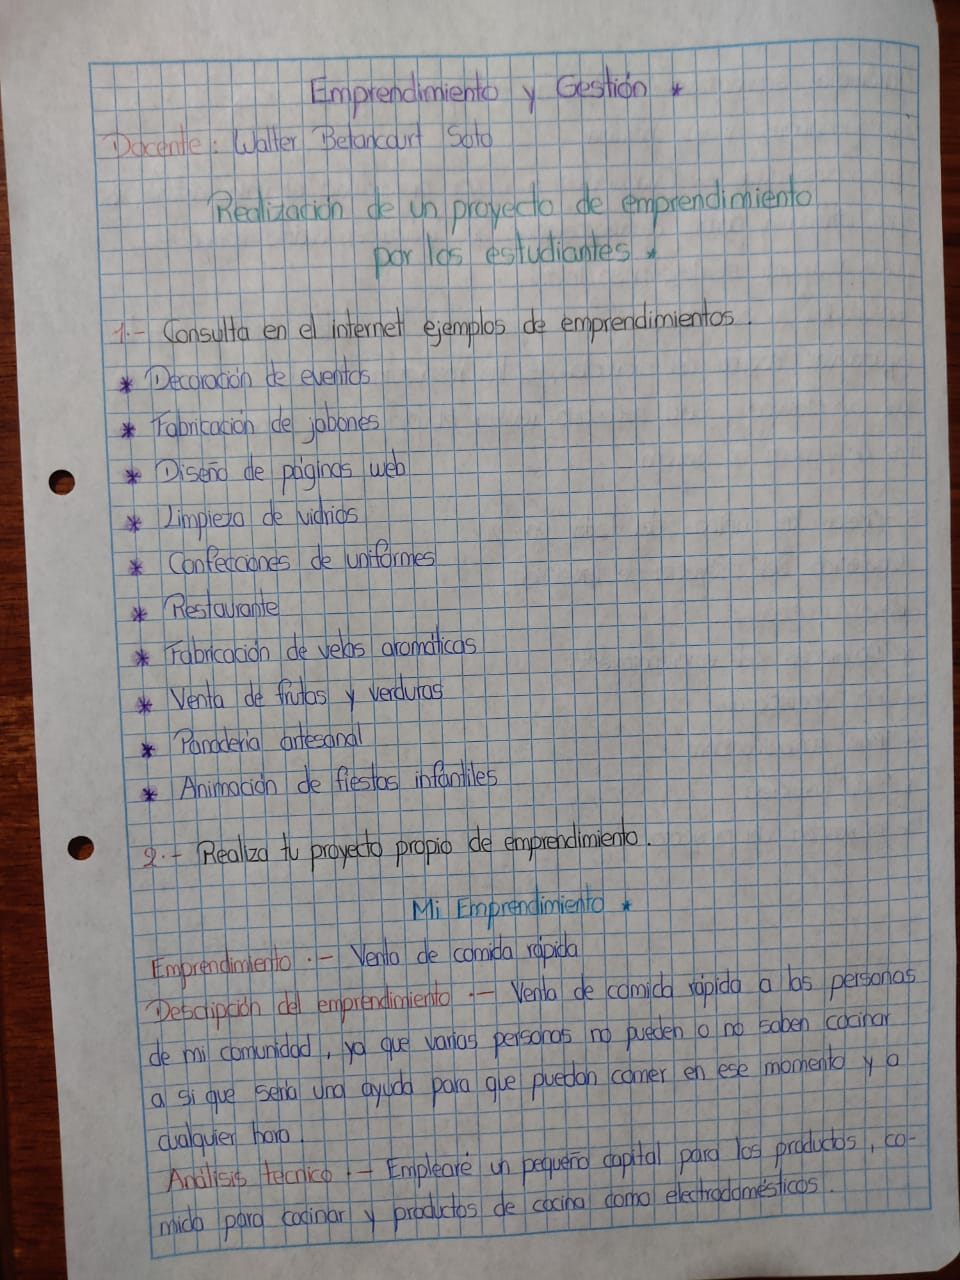 Emprendimiento y Gestión *
Docente: Walter Betancourt Soto
Realización de un proyecto de emprendimiento
por los estudiantes *
1.- Consulta en el internet ejemplos de emprendimientos.
* Decoración de eventos
* Fabricación de jabones
* Diseño de páginas web
* Limpieza de vidrios
* Confecciones de uniformes
* Restaurante
* Fabricación de velas aromáticas
* Venta de frutas y verduras
* Panadería artesanal
* Animación de fiestas infantiles
2.- Realiza tu proyecto propio de emprendimiento.
Mi Emprendimiento *
Emprendimiento.- Venta de comida rápida
Descripción del emprendimiento.- Venta de comida rápida a las personas
de mi comunidad, ya que varias personas no pueden o no saben cocinar
a si que sería una ayuda para que puedan comer en ese momento y a
cualquier hora.
Análisis técnico.- Emplearé un pequeño capital para los productos, co-
mida para cocinar y productos de cocina como electrodomésticos.